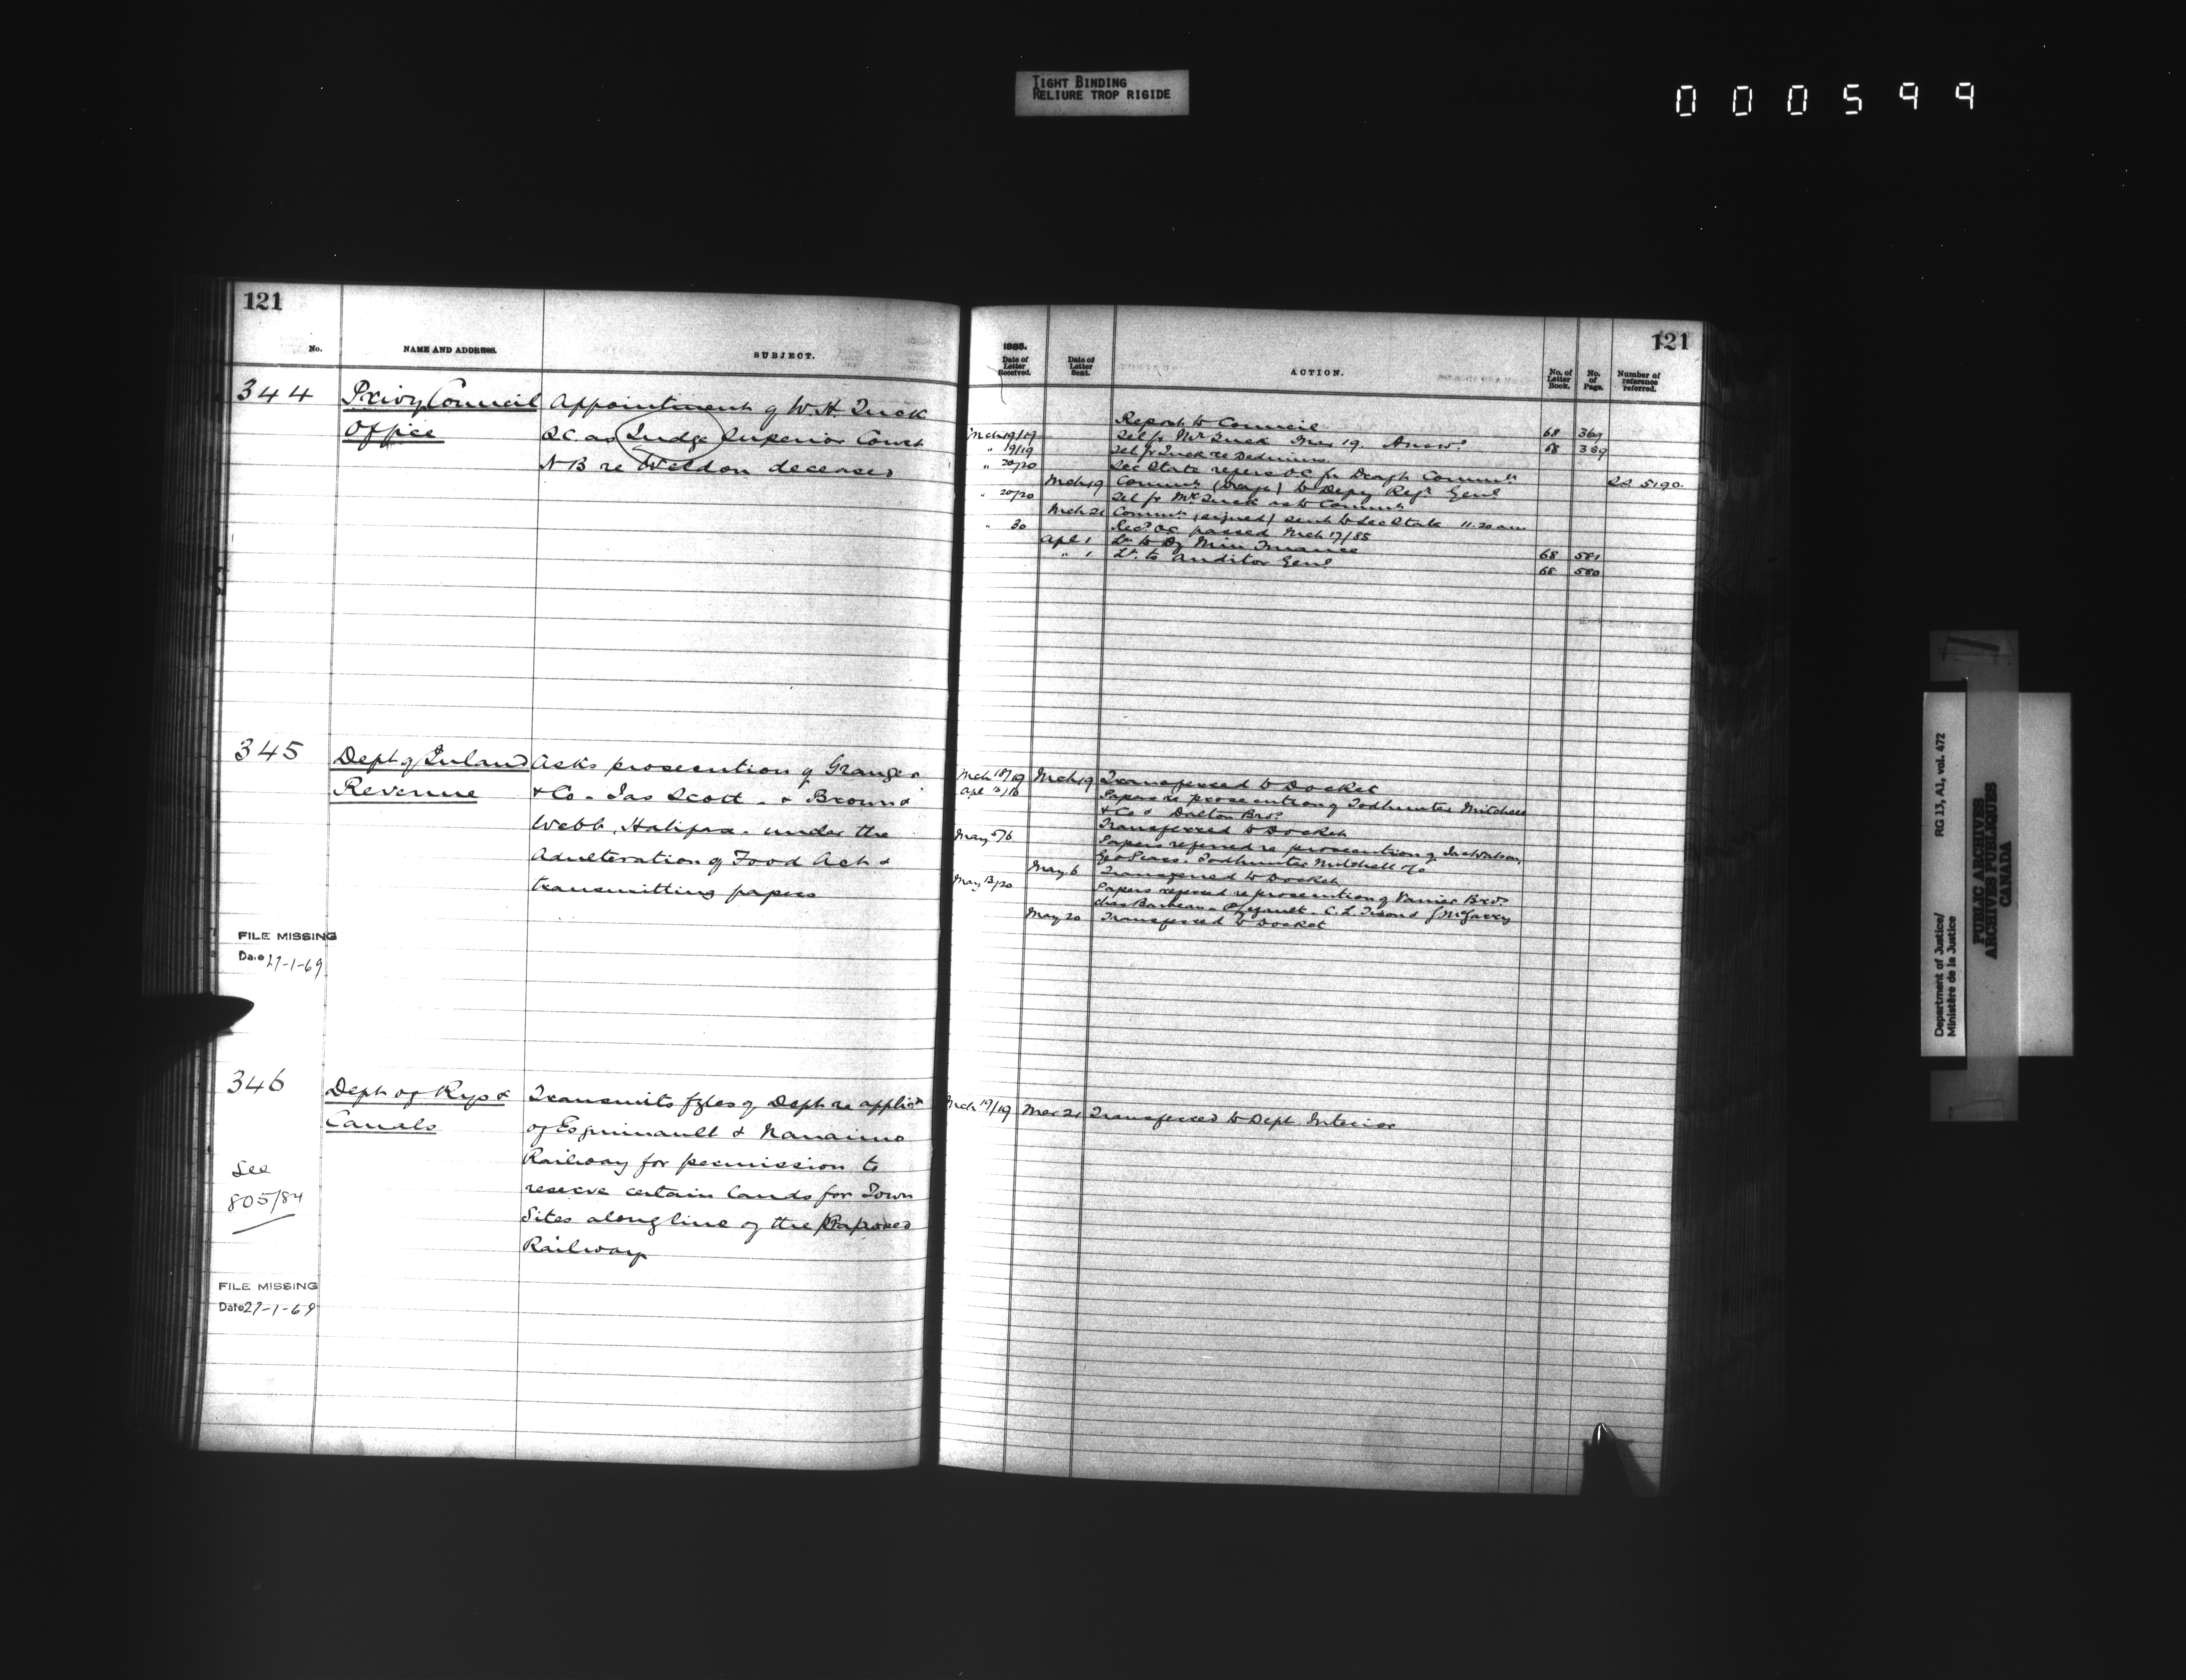 TIGHT BINDING
RELIURE TROP RIGIDE
000599
121
No.
NAME AND ADDRESS.
SUBJECT.
344
Privy Council
Office
Appointment of W. H Tuck
QC as Judge Superior Court
N B re Weldon deceased
345
Dept of Inland
Revenue
Asks prosecution of Granger
& Co - Jas Scott - & Brown &
Webb, Halifax - under the
Adulteration of Food Act &
transmitting papers
FILE MISSING
Date 27-1-69
346
Dept of Rys &
Canals
See
805/84
Transmits fyles of Dept re applicn
of Esquimault & Nanaimo
Railway for permission to
reserve certain lands for Town
Sites along line of the Proposed
Railway
FILE MISSING
Date 27-1-69
121
1885.
Date of Letter Received.
Date of Letter Sent.
ACTION.
No. of Letter Book.
No. of Page.
Number of reference referred.
Report to Council 68 369
Mch 19/19 Tel fr Mr Tuck Mch 19. Answd 68 369
" 19/19 Tel fr Tuck re Dedimus
" 20/20 Sec State refers O.C. for Draft Commn SS 5190.
Mch 19 Commn (Draft) to Depy Regr Genl
" 20/20 Tel fr Mr Tuck as to Commn
Mch 21 Commn (signed) sent to Sec State 11.20 am
" 30 Recd OC passed Mch 17/85
Apl 1 Lr to Dy Min Finance 68 581
" 1 Lr. to Auditor Genl 68 580
Mch 18/19 Mch 19 Transferred to Docket
Papers re prosecution of Todhunter Mitchell
& Co & Dalton Bros
Transferred to Docket
May 5/6 Papers referred re prosecution of Jas Watson,
Todhunter Mitchell & Co
May 6 Transferred to Docket
May 13/20 Papers referred re prosecution of Vanier Bros
Chas Barbeau - C. L. & J McGarry
May 20 Transferred to Docket
Mch 19/19 Mar 21 Transferred to Dept Interior
Department of Justice/
Ministère de la Justice
RG 13, A1, vol. 472
PUBLIC ARCHIVES
ARCHIVES PUBLIQUES
CANADA